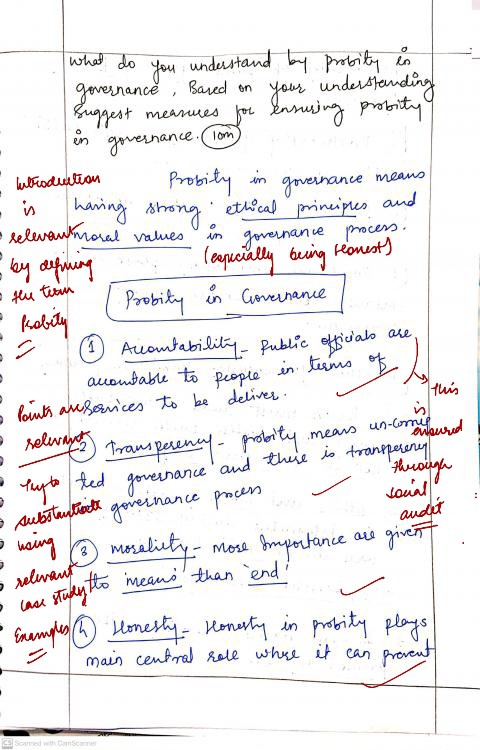 what do you understand by probity in
governance, Based on your understanding
suggest measures for ensuring probity
in governance. 10m
Introduction
is
relevant
by defining
the term
Probity
Probity in governance means
having strong ethical principles and
moral values in governance process.
(especially being Honest)
Probity in Governance
1 Accountability - Public officials are
accountable to people in terms of
services to be deliver.
this
is
ensured
through
social
audit
Points are
relevant
Try to
substantiate
using
relevant
case study
Examples
2 Transperency - probity means un-corrup
ted governance and there is transperency
in governance process
3 moraliety - more Importance are given
to 'means' than 'end'
4 Honesty - Honesty in probity plays
main central role where it can prevent
CS Scanned with CamScanner